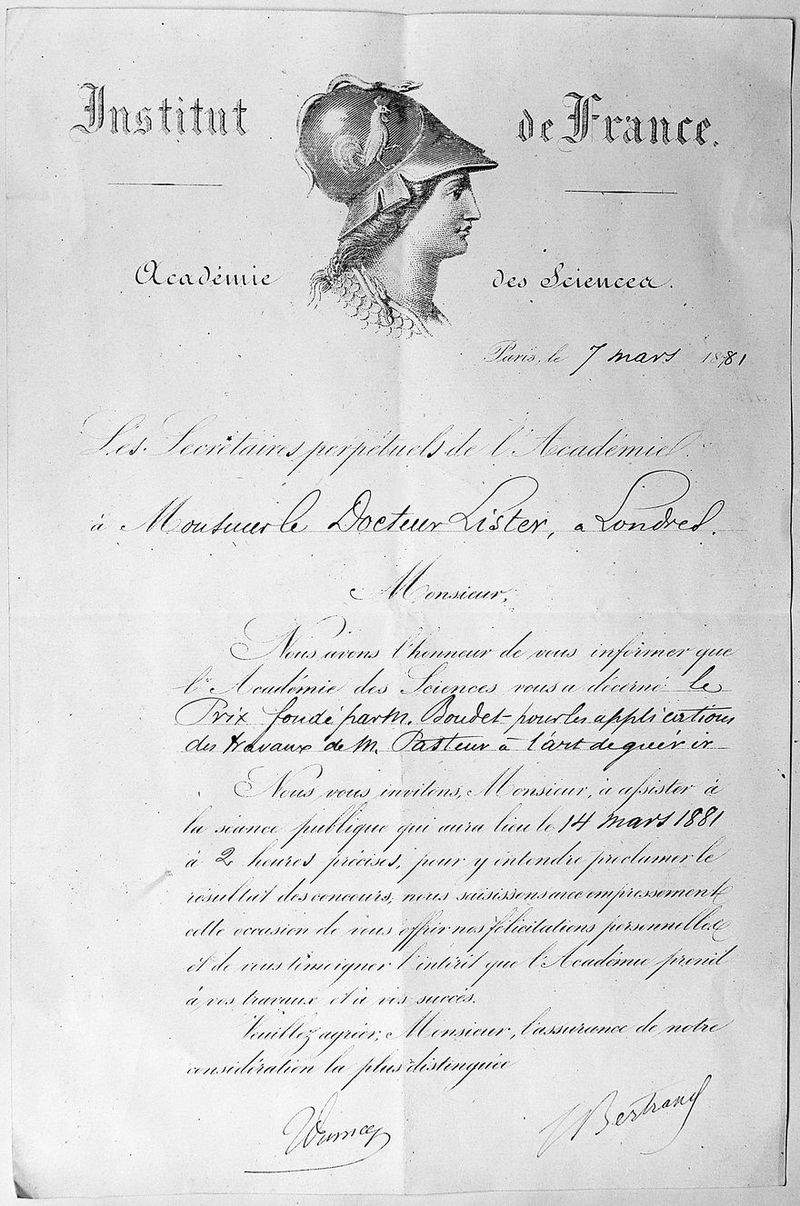 Institut de France.
Académie des Sciences.
Paris, le 7 mars 1881
Les Secrétaires perpétuels de l'Académie
à Monsieur le Docteur Lister, a Londres.
Monsieur,
Nous avons l'honneur de vous informer que
l'Académie des Sciences vous a décerné le
Prix fondé par M. Boudet pour les applications
des travaux de M. Pasteur à l'art de guérir
Nous vous invitons, Monsieur, à assister à
la séance publique qui aura lieu le 14 mars 1881
à 2 heures précises, pour y entendre proclamer le
résultat des concours, nous saisissons avec empressement
cette occasion de vous offrir nos félicitations personnelles
et de vous témoigner l'intérêt que l'Académie prend
à vos travaux et à vos succès.
Veuillez agréer, Monsieur, l'assurance de notre
considération la plus distinguée
JBertrand